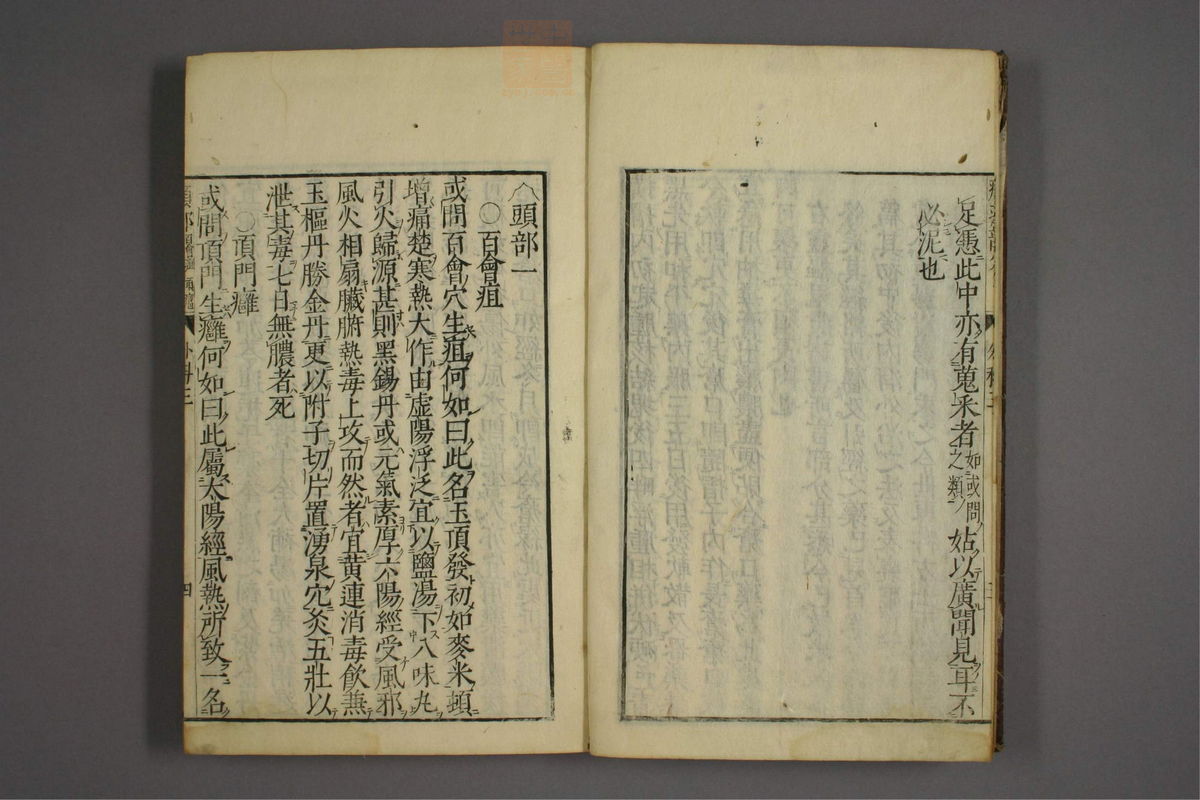 足憑此中亦有蒐采者如或問之類姑以廣聞見耳不
必泥也
頭部一
○百會疽
或問百會穴生疽何如曰此名玉頂發初如麥米頓
增痛楚寒熱大作由虛陽浮泛宜以鹽湯下八味丸
引火歸源甚則黑錫丹或元氣素厚六陽經受風邪
風火相扇臟腑熱毒上攻而然者宜黃連消毒飲兼
玉樞丹勝金丹更以附子切片置湧泉穴灸五壯以
泄其毒七日無膿者死
○頂門癰
或問頂門生癰何如曰此屬太陽經風熱所致一名
四